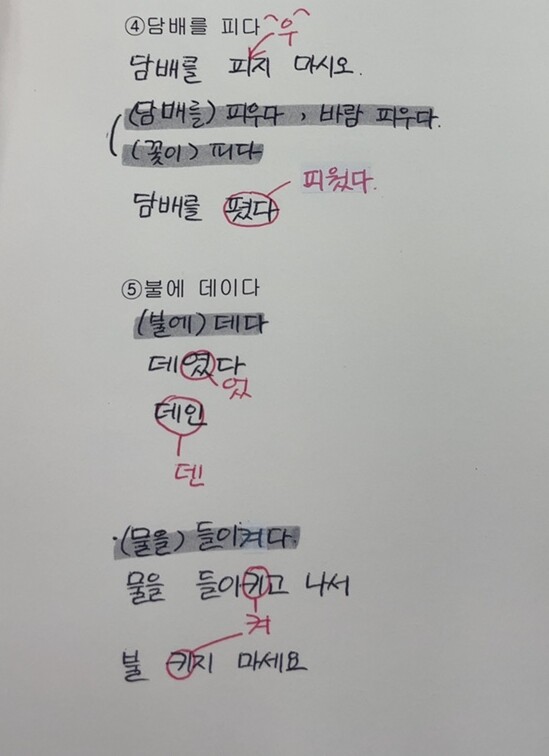 ④담배를 피다 우
담배를 피지 마시오.
(담배를) 피우다, 바람 피우다.
(꽃이) 피다
피웠다.
담배를 폈다
⑤불에 데이다
(불에) 데다
데였다
었
데인
덴
(물을) 들이켜다.
물을 들이키고 나서
켜
불 키지 마세요